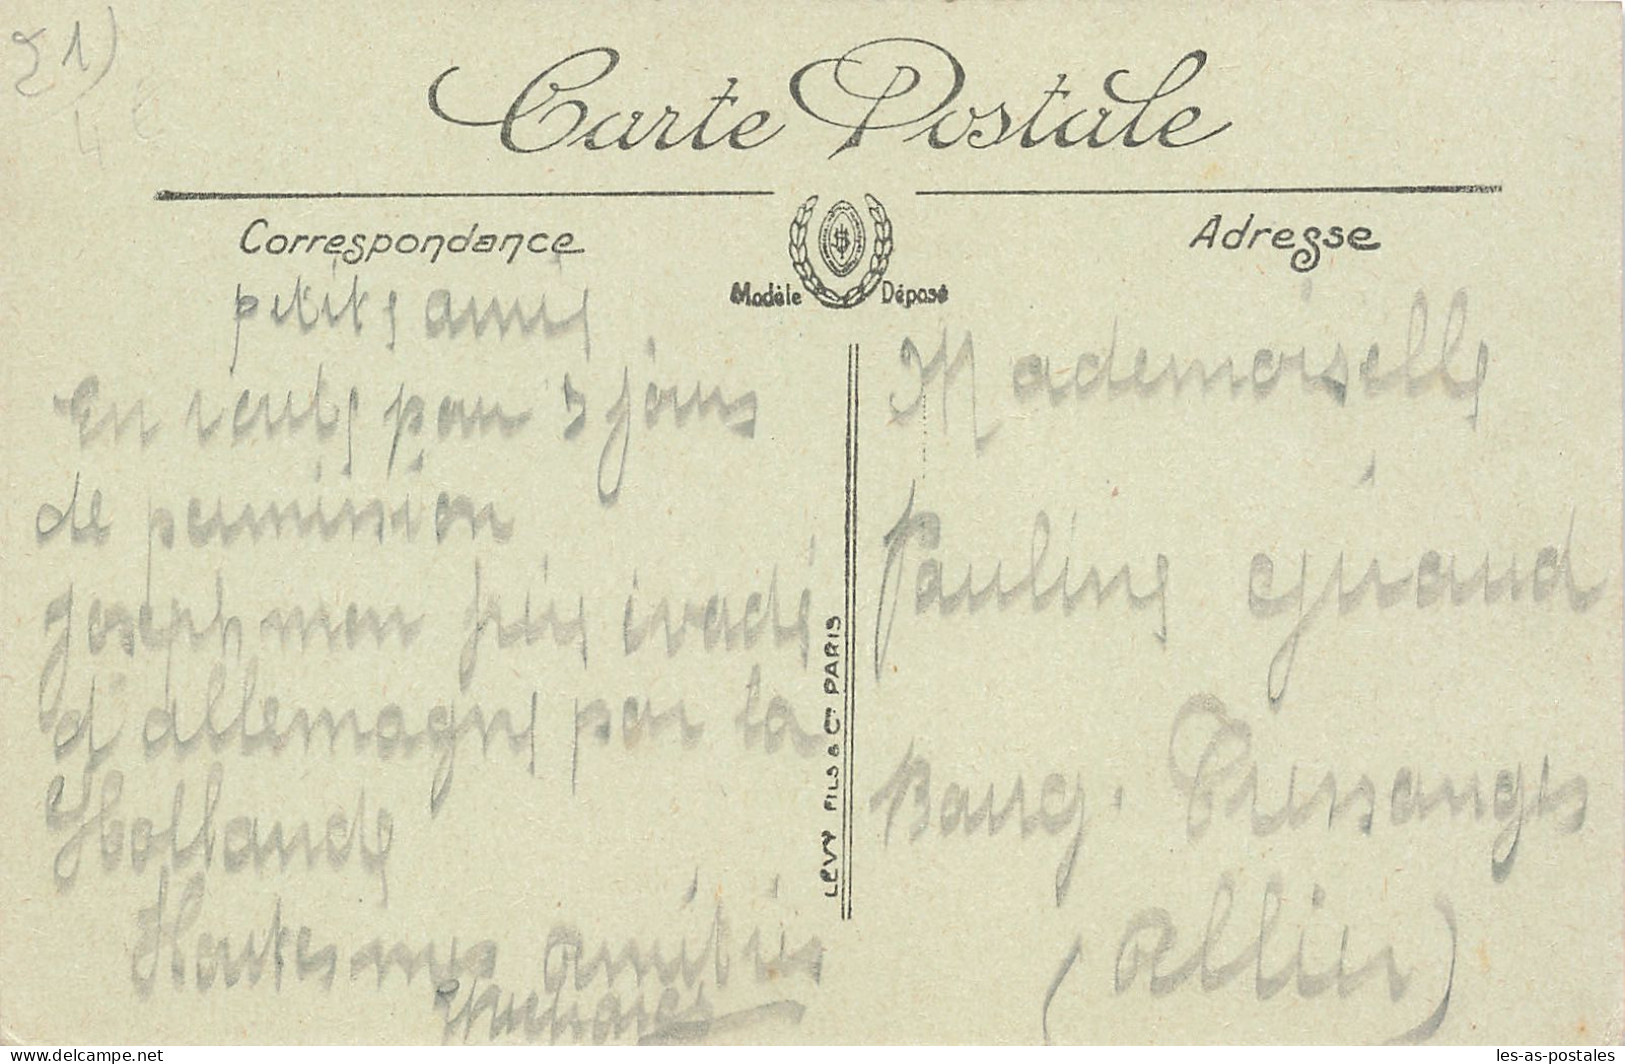 51)
4 €
Carte Postale
Correspondance
Adresse
Modèle Déposé
petits amis
En route pour 3 jours
de permission
joseph mon frère évadé
d'allemagne par la
Hollande
amitiés
LEVY FILS & Cie PARIS
Mademoiselle
Pauline Giraud
Bourg. Tressanges
(Allier)
www.delcampe.net
les-as-postales